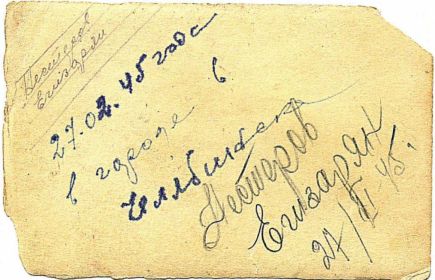 Нестеров
Егизарян
27.02.45 года
в
в городе
Челябинске
Нестеров
Егизарян
27/II 45.